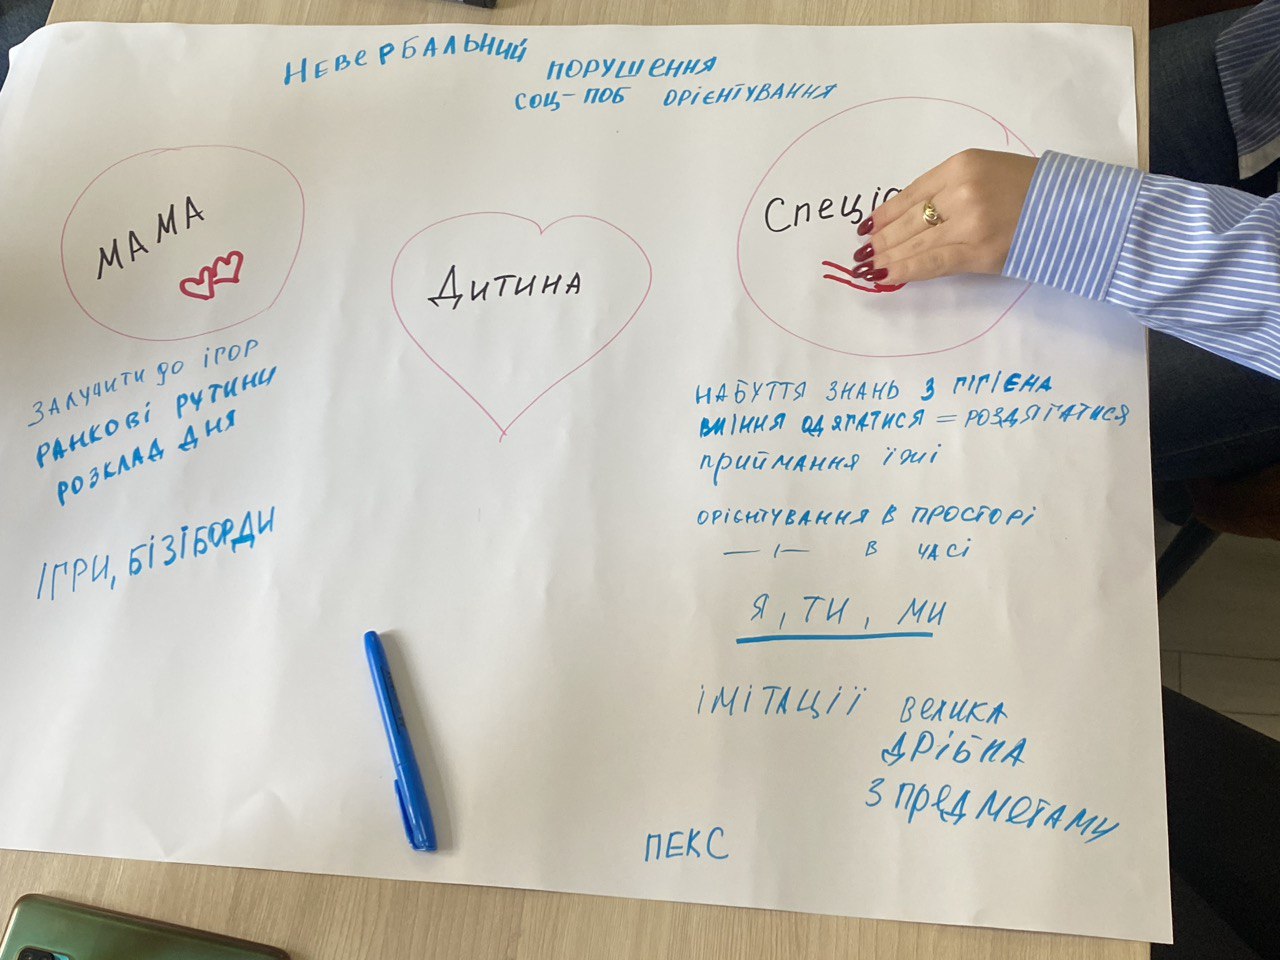 НЕВЕРБАЛЬНИЙ ПОРУШЕННЯ
СОЦ-ПОБ ОРІЄНТУВАННЯ
МАМА
ЗАЛУЧИТИ ДО ІГОР
РАНКОВІ РУТИНИ
РОЗКЛАД ДНЯ
ІГРИ, БІЗІБОРДИ
Дитина
Спеціа
НАБУТТЯ ЗНАНЬ З ГІГІЄНА
ВМІННЯ ОДЯГАТИСЯ = РОЗДЯГАТИСЯ
ПРИЙМАННЯ ЇЖІ
ОРІЄНТУВАННЯ В ПРОСТОРІ
— І — В ЧАСІ
Я, ТИ, МИ
ІМІТАЦІЇ ВЕЛИКА
ДРІБНА
З ПРЕДМЕТАМИ
ПЕКС